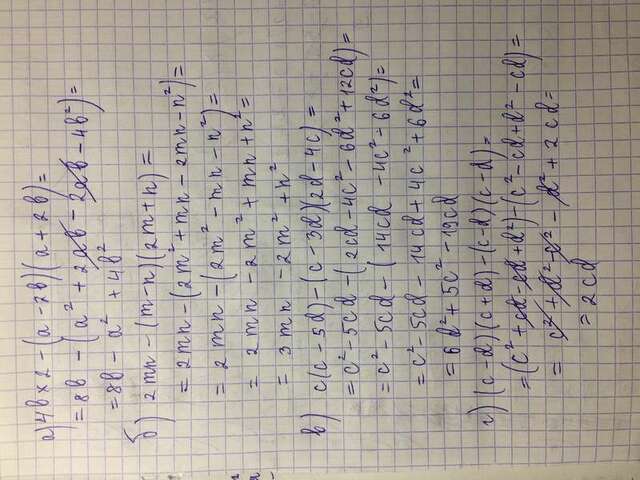 а) 4b × 2 - (a - 2b)(a + 2b) =
= 8b - (a² + 2ab - 2ab - 4b²) =
= 8b - a² + 4b²
б) 2mn - (m - n)(2m + n) =
= 2mn - (2m² + mn - 2mn - n²) =
= 2mn - (2m² - mn - n²) =
= 2mn - 2m² + mn + n² =
= 3mn - 2m² + n²
в) c(c - 5d) - (c - 3d)(2d - 4c) =
= c² - 5cd - (2cd - 4c² - 6d² + 12cd) =
= c² - 5cd - (14cd - 4c² - 6d²) =
= c² - 5cd - 14cd + 4c² + 6d² =
= 6d² + 5c² - 19cd
г) (c - d)(c + d) - (c - d)(c - d) =
= (c² + cd - cd + d²) - (c² - cd + d² - cd) =
= c² + d² - c² - d² + 2cd =
= 2cd